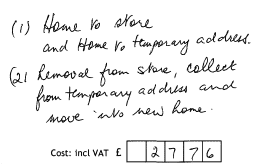 (1) Home to store
and Home to temporary address.
(2) Removal from store, collect
from temporary address and
move into new home.
Cost: incl VAT £ 2776